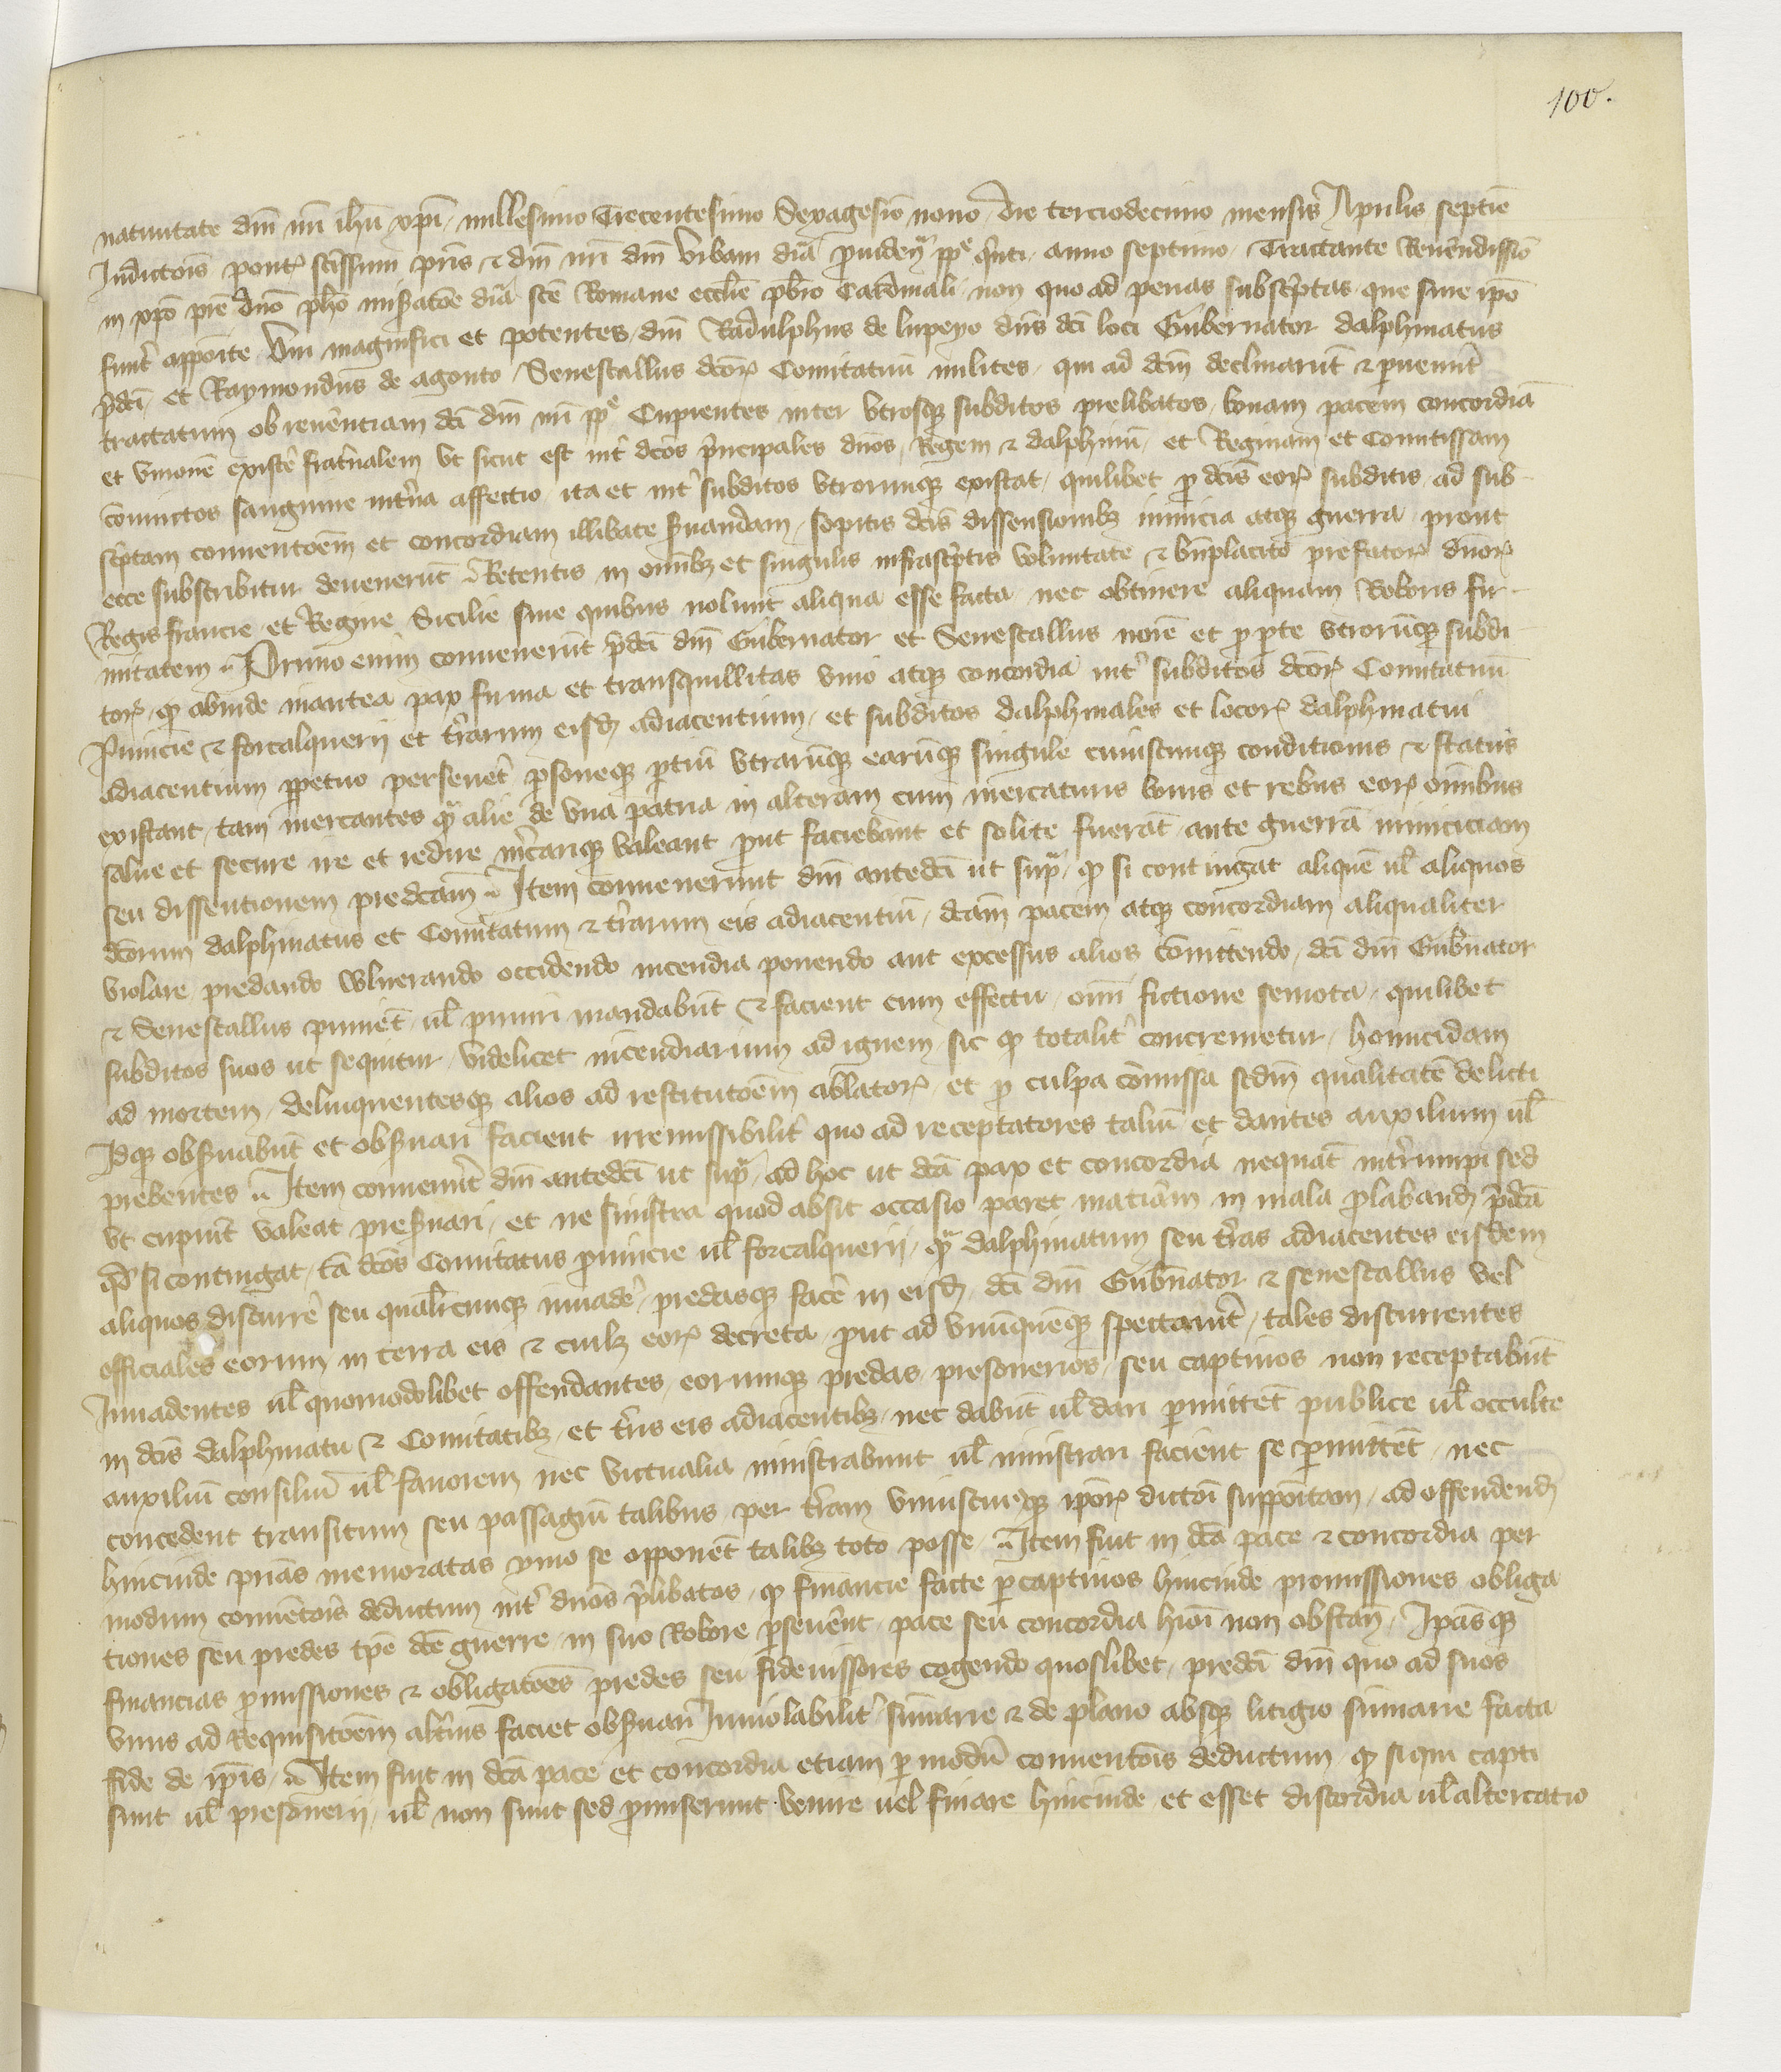 100.
natiuitate dñi nr̃i ihũ xp̃i millesimo Trecentesimo Sexagesiõ nono die terciodecimo mensis Aprilis septiẽ
Indictoĩs pont̃ sc̃issimi pr̃is & dñi nr̃i dñi Vrbani diã prouideñ pp̃e q̃nti anno septimo Tractante Reuẽndissiõ
in xp̃o pr̃e dño ph̃o mis̃atõe diã sc̃e Romane ecclẽie pb̃ro Cardinali non quo ad penas subsc̃ptas que sine ip̃o
sunt̃ appoĩte Viri magnifici et potentes dñi Radulphus de lupeyo dñs dc̃i loci Gubernator dalphinatus
p̃dc̃i et Raymondus de agouto Senescallus dc̃or̃ Comitatuũ milites qui ad dc̃m declinarũt & peruenerũt
tractatum ob reuẽrentiam dc̃i dñi nr̃i pp̃e Cupientes inter vtrosq̃ subditos prelibatos bonam pacem concordiã
et vnionẽ existẽ frat̃nalem vt sicut est int̃ dc̃os p̃ncipales dños Regem & dalphinũ et Reginam et Comitissam
coniunctos sanguine int̃na affectio ita et int̃ subditos vtrorumq̃ existat quilibet p̃ dc̃is eor̃ subditis ad sub
sc̃ptam conuentoẽm et concordiam illibate s̃uandam sopitis dc̃is dissensionibȝ inimicia atq̃ guerra prout
ecce subscribitur deuenerũt Retentis in om̃ibȝ et singulis infrasc̃ptis voluntate & bñplacito prefator̃ dñor̃
Regis francie et Regine Sicilie sine quibus nolunt aliqua esse facta nec obtinere aliquam Roboris fir
mitatem Primo enim conuenerũt p̃dc̃i dñi Gubernator et Senescallus noĩe et p̃ p̃te vtrorũq̃ subdi
tor̃ q̃ abinde inantea pax firma et transquillitas vnio atq̃ concordia int̃ subditos dc̃or̃ Comitatuũ
Prouincie & forcalquerij et t̃rarum eisd̃ adiacentium et subditos dalphinales et locor̃ dalphinatui
adiacentium p̃petuo perseuet̃ p̃soneq̃ p̃tiũ vtrarũq̃ earũq̃ singule cuiuscunq̃ conditionis & status
existant tam mercantes q̃ alie de vna patria in alteram cum mercaturis bonis et rebus eor̃ om̃ibus
salue et secure ire et redire m̃carıq̃ valeant p̃ut faciebant et solite fuerãt ante guerrã inimiciciam
seu dissentionem predc̃am Item conuenerunt dñi antedc̃i ut sup̃ q̃ si contingat aliquẽ ul̃ aliquos
dc̃orum dalphinatus et Comitatum & t̃rarum eis adiacentiũ dc̃am pacem atq̃ concordiam aliqualiter
violare predando vulnerando occidendo incendia ponendo aut excessus alios cõmittendo dc̃i dñi Gub̃nator
& Senescallus puniẽt ul̃ puniri mandabũt & facient cum effectu om̃i fictione semota quilibet
subditos suos ut sequitur videlicet incendiarium ad ignem sic q̃ totalit̃ concremetur homicidam
ad mortem delinquentesq̃ alios ad restitutoẽm ablator̃ et p̃ culpa cõmissa sc̃dm qualitatẽ delicti
Idq̃ obs̃uabũt et obs̃uari facient irremissibilit̃ quo ad receptatores taliũ et dantes auxilium ul̃
prebentes Item conuenerũt dñi antedc̃i ut sup̃ ad hoc ut dc̃a pax et concordia nequãt int̃rumpi sed
vt cupiunt valeat pres̃uari et ne sinistra quod absit occasio paret mat̃iam in mala prolaband̃ p̃dc̃a
q̃d si contingat tã dc̃os Comitatus prouincie ul̃ forcalquerij q̃ dalphinatum seu t̃ras adiacentes eisdem
aliquos discurrẽ seu qualic̃unq̃ inuadẽ predasq̃ facẽ in eisd̃ dc̃i dñi Gub̃nator & senescallus vel
officiales eorum in terra eis & cuilȝ eor̃ decreta p̃ut ad vnũquẽq̃ spectauit̃ tales discurrentes
Inuadentes ul̃ quomodolibet offendantes eorumq̃ predas presonerios seu captiuos non receptabũt
in dc̃is dalphinatu & Comitatibȝ et t̃ris eis adiacentibȝ nec dabũt ul̃ dari p̃mittẽt publice ul̃ occulte
auxiliũ consiliũ ul̃ fauorem nec victualia ministrabunt ul̃ ministrari facient se p̃mittẽt nec
concedent transitum seu passagiũ talibus per t̃ram vniuscuiusq̃ ip̃or̃ dictoĩ suppoĩtam ad offendend̃
hincinde pr̃ias memoratas ymo se opponẽt talibȝ toto posse Item fuit in dc̃a pace & concordia per
modum conuẽtoĩs deductum int̃ dños p̃libatos q̃ financie facte p̃ captiuos hincinde promissiones obliga
tiones seu predes tp̃e dc̃e guerre in suo Robore p̃seuẽnt pace seu concordia h̃ioĩ non obstañ Ip̃asq̃
financias promissiones & obligatoẽs predes seu fideiussores cogendo quoslibet predc̃i dñi quo ad suos
vnus ad Requisitoẽm alt̃ius faciet obs̃uari Inuiolabilit̃ sum̃arie & de plano absq̃ litigio sum̃arie facta
fide de ip̃is Item fuit in dc̃a pace et concordia etiam p̃ modũ conuentoĩs deductum q̃ si qui capti
sunt ul̃ presonerij ul̃ non sunt sed promiserunt venire uel finare hincinde et esset discordia ul̃ altercatio